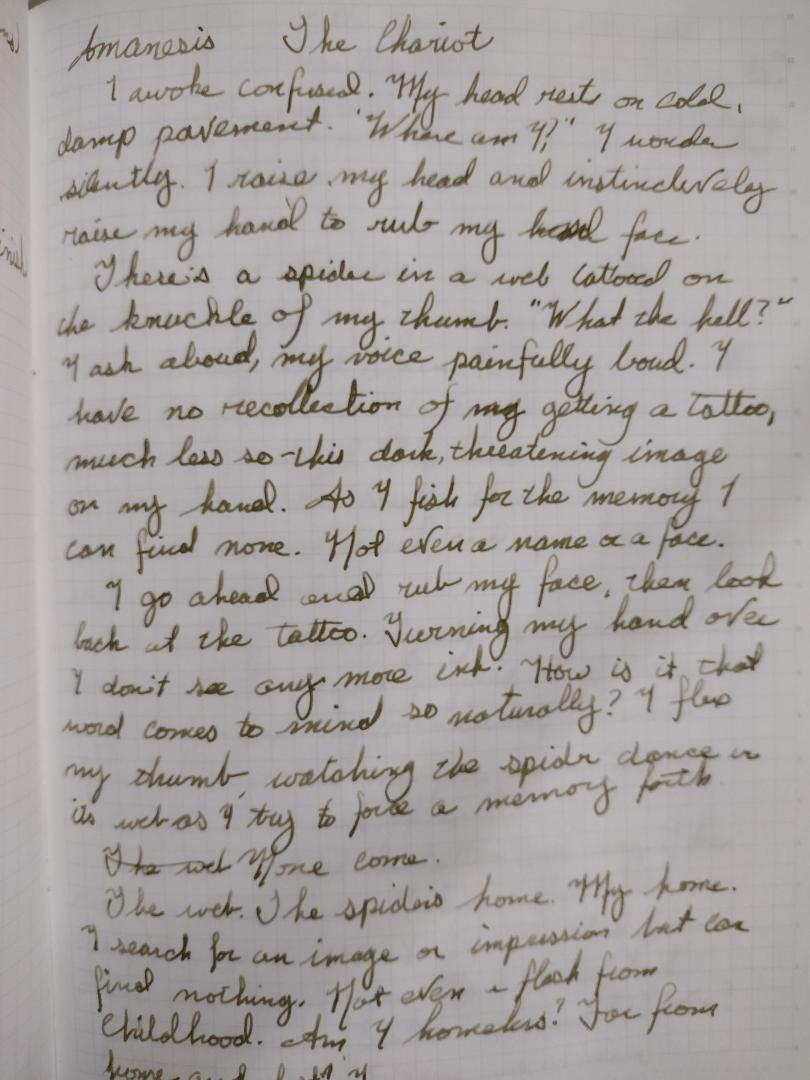 Amanesis The Chariot
I awoke confused. My head rests on cold,
damp pavement. "Where am I?" I wonder
silently. I raise my head and instinctively
raise my hand to rub my face.
There's a spider in a web tattooed on
the knuckle of my thumb. "What the hell?"
I ask aloud, my voice painfully loud. I
have no recollection of getting a tattoo,
much less so this dark, threatening image
on my hand. As I fish for the memory I
can find none. Not even a name or a face.
I go ahead and rub my face, then look
back at the tattoo. Turning my hand over
I don't see any more ink. How is it that
word comes to mind so naturally? I flex
my thumb, watching the spider dance in
its web as I try to force a memory forth
The web None come.
The web. The spider's home. My home.
I search for an image or impression but can
find nothing. Not even a flash from
childhood. Am I homeless? Far from
home and